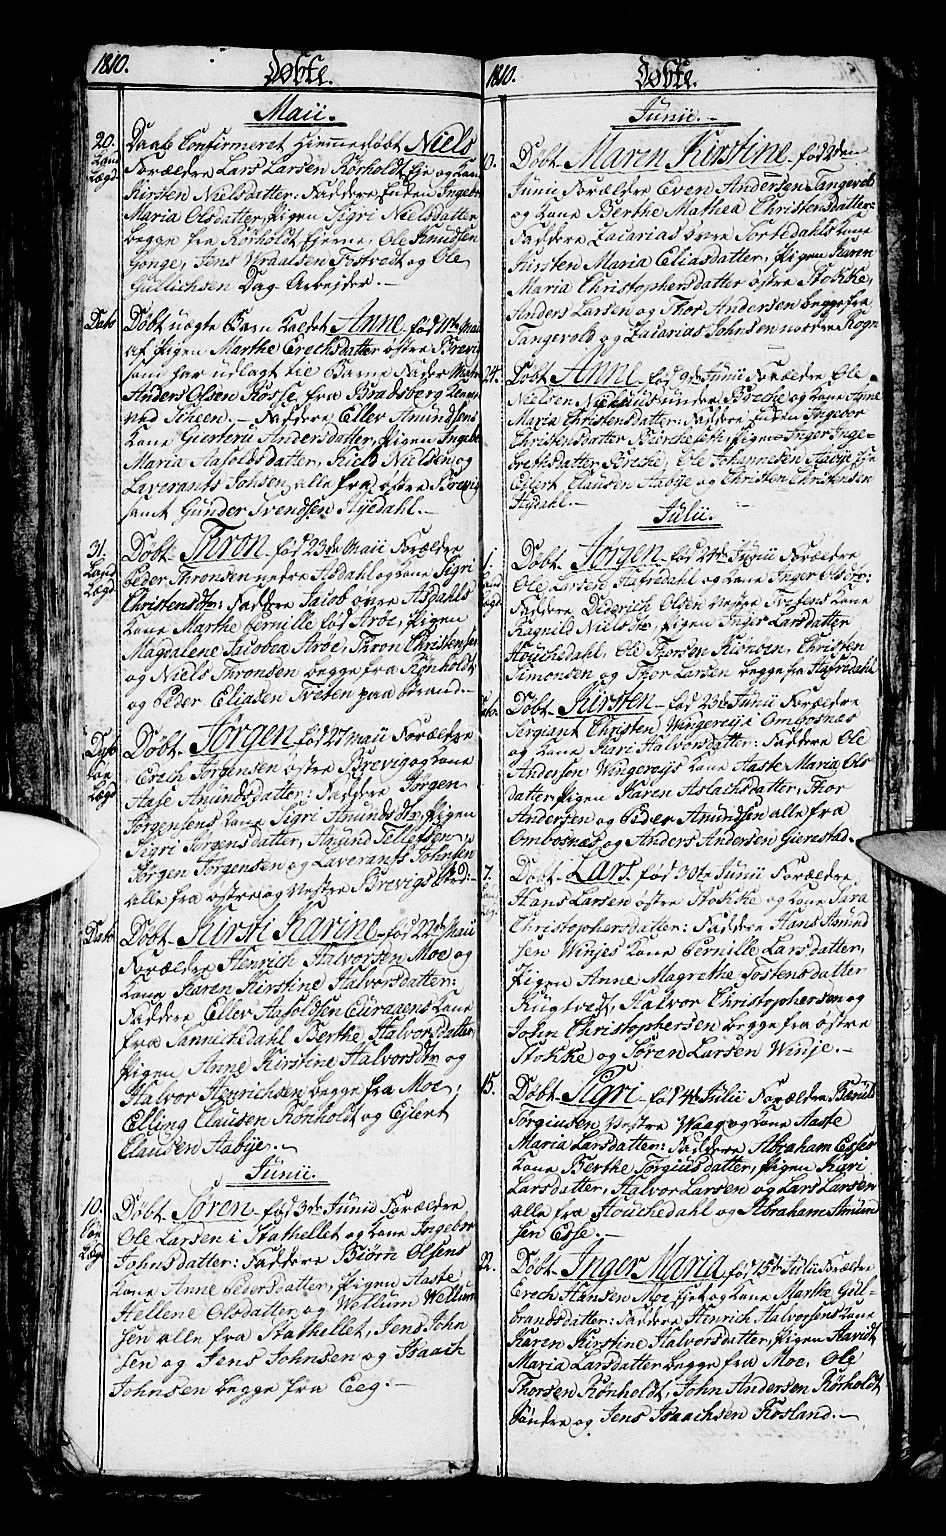 1810.
Døbte.
Maii.
20.
Land
Lægd
Daab Confirmeret Hiemmedøbt Niels
Forældre Lars Larsen Rörholdt Eje og Kone
Kirsten Nielsdatter: Faddere Enken Ingebor
Maria Olsdatter, Pigen Sigri Nielsdatter
begge fra Rörholdt Ejerne, Ole Knudsen
Gonge, Jens Wraalsen Tostvedt og Ole
Gullichsen Dag Arbejder.
Dato
Døbt uægte Barn kaldet Anne, fød 11te Maii
af Pigen Marthe Erechsdatter østre Brevig
som har udlagt til Barne Fader
Anders Olsen Kosse fra Bradsberg
ved Scheen. – Faddere Ellev Amundsens
Kone Giertru Andersdatter, Pigen Ingebor
Maria Aasoldsdatter, Kield Nielsen og
Laverants Johsen, alle fra østre Brevig
samt Gunder Svendsen Hyedahl.
31.
Land
Lægd
Døbt Thron fød 23de Maii Forældre
Peder Thronsen nedre Asdahl og Kone Sigri
Christensdtr: Faddere Jacob øvre Asdahls
Kone Marthe Pernille fød Aröe, Pigen
Magdalene Jacobea Aröe, Thron Christensen
og Niels Thronsen begge fra Rönholdt
og Peder Eliasen Tveten paa Strand.
Dato
Søe
Lægd
Døbt Jørgen fød 27 Maii Forældre
Erech Jørgensen østre Brevig og Kone
Aase Amundsdatter: Faddere Jørgen
Jørgensens Kone Sigri Amundsdtr, Pigen
Sigri Jørgensdatter, Amund Tellefsen,
Jørgen Jørgensen og Laverants Johnsen
alle fra østre og Vestre Brevigs
Dato
Døbt Kirsti Karine fød 22de Maii
Forældre Henrich Halvorsen Moe og
Kone Karen Kirstine Halvorsdatter:
Faddere Ellev Aasoldsen Eüragens Kone
fra Sannikedahl Berthe Halvorsdatter,
Pigen Anne Kirstine Halvorsdtr og
Halvor Henrichsen begge fra Moe,
Elling Clausen Rönholdt og Ejlert
Clausen Aabye.
Junii.
10.
Søe
Lægd
Døbt Søren fød 3de Junii Forældre
Ole Larsen i Stathellet og Kone Ingebor
Johnsdatter: Faddere Biörn Olsens
Kone Anne Pedersdatter, Pigen Aaste
Hellene Olsdatter og Wellum Wellum
sen alle fra Stathellet, Jens John
sen og Jens Johnsen og Isaach
Johnsen begge fra Eeg.
1810.
Døbte.
Junii.
Døbt Maren Kirstine fød 2den
Junii Forældre Even Andersen Tangevold
og Kone Berthe Mathea Christensdatter:
Faddere Zacarias øvre Tortedahls Kone
Kirsten Maria Eliasdatter, Pigen Karen
Maria Christophersdatter østre Stokke,
Anders Larsen og Thor Andersen begge fra
Tangevold og Zacarias Johnsen nordre Rogn
24.
Døbt Anne fød 9de Junii Forældre Ole
Nielsen nedre Breche og Kone Anne
Maria Christensdatter: Faddere Enken Ingebor
Christensdatter Beirkebeck, Pigen Inger Inge-
brethsdatter Breche, Ole Johannesen Aabye Eje
Ejlert Clausen Aabye og Christen Christensen
Hydahl.
Julii.
1.
Land
Lægd
Døbt Jørgen fød 24de Junii Forældre
Ole Larsen Hafredahl og Kone Inger Olsdtr:
Faddere Diderich Olsen Vestre Tvetens Kone
Ragnild Nielsdtr, Pigen Inger Larsdatter
Houchedahl, Ole Thorsen Kiönsen, Christen
Simonsen og Thor Larsen begge fra Hafredahl
Dato.
Døbt Kirsten fød 23de Junii Forældre
Sergiant Christen Wingereys Ombosnæs
og Kone Kari Halvorsdatter: Faddere Ole
Andersen Wingereys Kone Aaste Maria Ols
datter, Pigen Karen Aslachsdatter, Thor
Andersen og Peder Amundsen alle fra
Ombosnæs og Anders Andersen Gurestad.
7.
Døbt Lars fød 30te Junii Forældre
Hans Larsen østre Stokke og Kone Sara
Christophersdatter: Faddere Hans Amund
sen Winjes Kone Pernille Larsdatter,
Pigen Anne Magrethe Tostensdatter
Rugtvedt, Halvor Christophersen og
John Christophersen begge fra østre
Stokke og Søren Larsen Winje.
15.
Døbt Sigri fød 4de Julii Forældre
Torgiusen Vestre Waag og Kone Aaste
Maria Larsdatter: Faddere Abraham Esses
Kone Berthe Torgiusdatter, Pigen Kari
Larsdatter, Halvor Larsen og Lars Larsen
alle fra Houchedahl og Abraham Amund
sen Esse.
22.
Døbt Inger Maria fød 15de Julii Forældre
Erech Hansen Moe Ejet og Kone Marthe Gull-
brandsdatter: Faddere Henrich Halvorsens Kone
Karen Kirstine Halvorsdatter, Pigen Havidt
Maria Larsdatter begge fra Moe, Ole
Thorsen Rönholdt, John Andersen Rörholdt
Søndre og Jens Isaachsen Rosland.